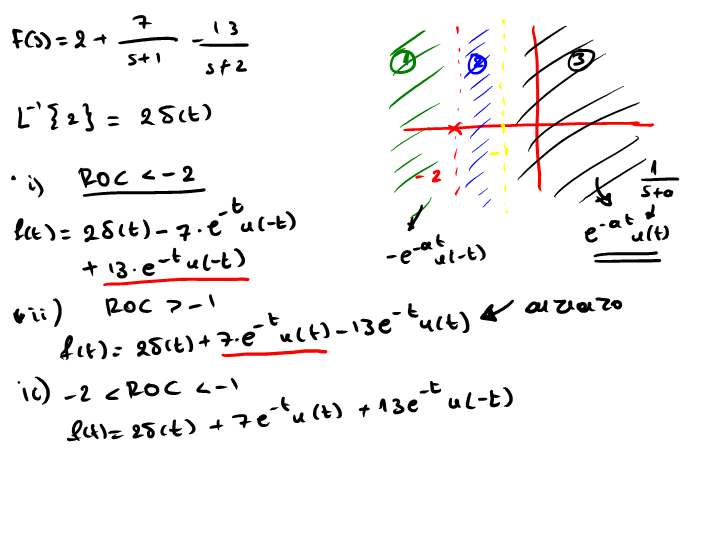 F(s) = 2 + 7/(s+1) - 13/(s+2)
L⁻¹{2} = 2δ(t)
i) ROC < -2
f(t) = 2δ(t) - 7.e^-t u(-t)
+ 13.e^-t u(-t)
iii) ROC > -1
f(t) = 2δ(t) + 7.e^-t u(t) - 13e^-t u(t)
ii) -2 < ROC < -1
f(t) = 2δ(t) + 7e^-t u(t) + 13e^-t u(-t)
1 2 3
-2 -1
1/(s+a)
-e^-at u(-t)
e^-at u(t)